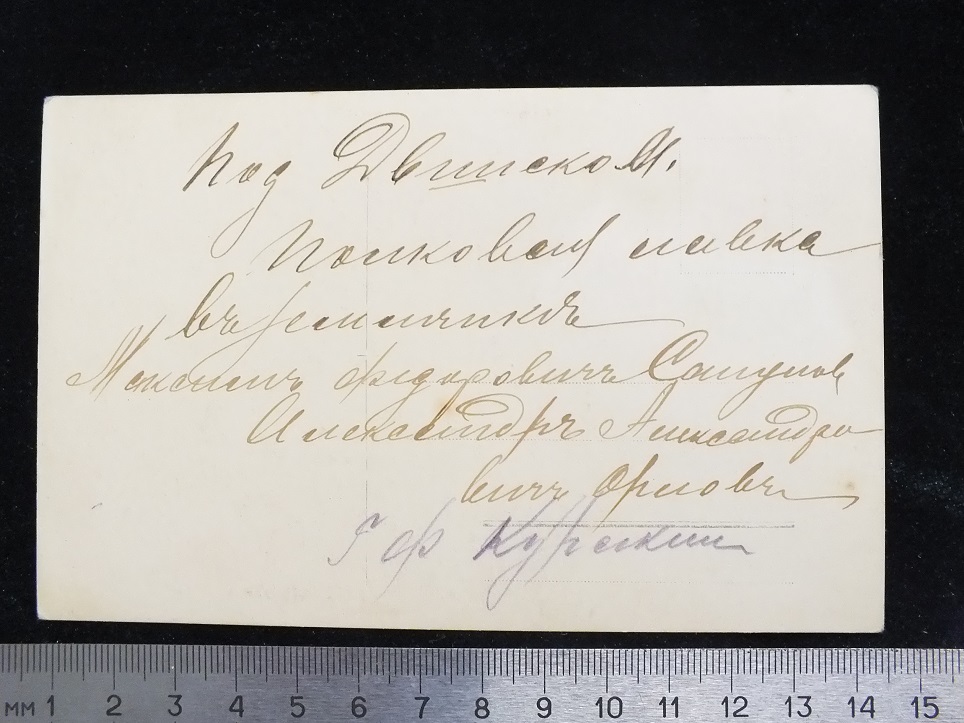 Под Двинском.
Полковая лавка
въ землянкѣ
Максимъ Федоровичъ Сапунов
Александръ Александро
вичъ Орловъ
Г Ф Курский
мм 1 2 3 4 5 6 7 8 9 10 11 12 13 14 15